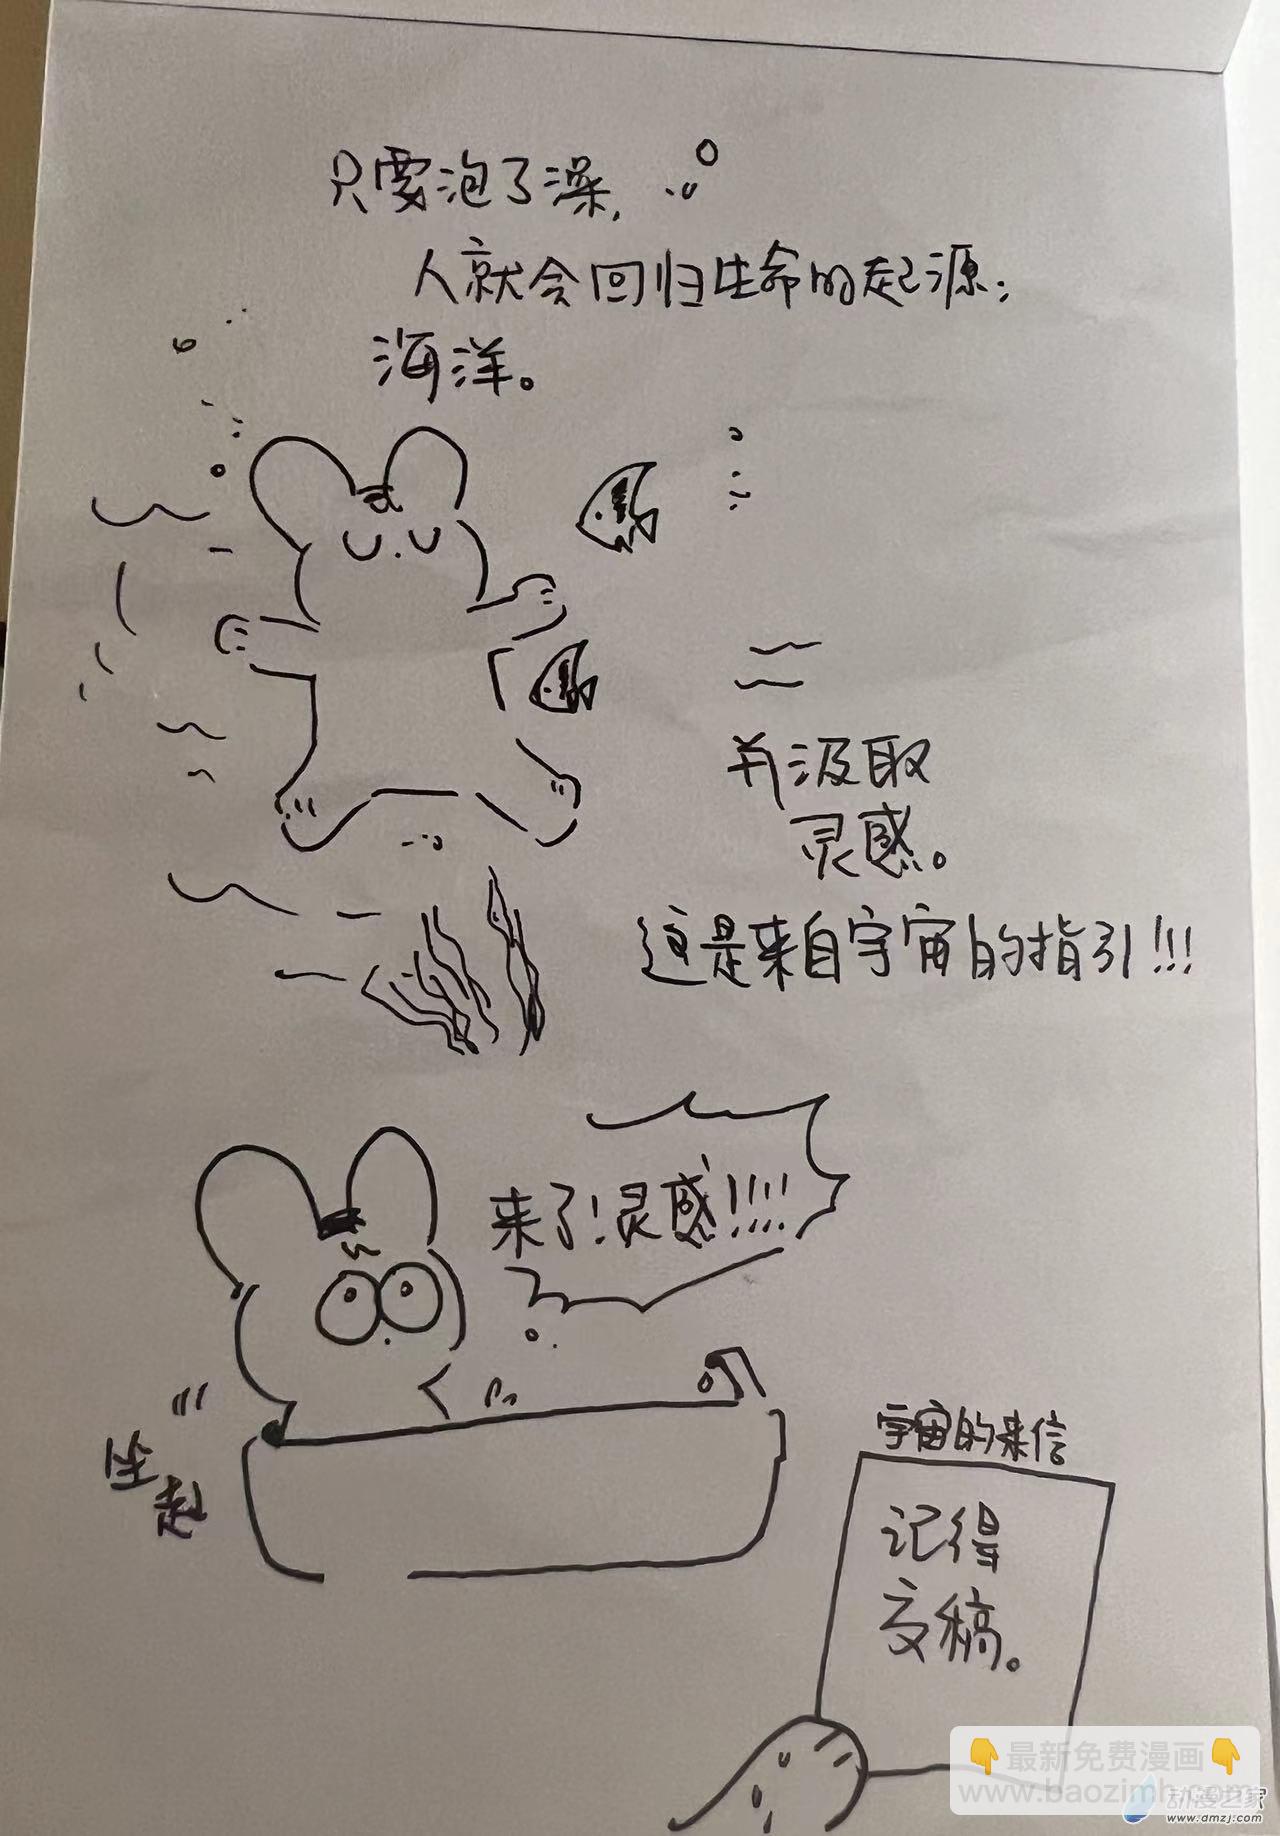 只要泡了澡,
人就会回归生命的起源;
海洋。
并汲取
灵感。
这是来自宇宙的指引!!!
来了!灵感!!!!
坐起
宇宙的来信
记得
交稿。
👇最新免费漫画👇
www.baozimh.com
动漫之家
www.dmzj.com